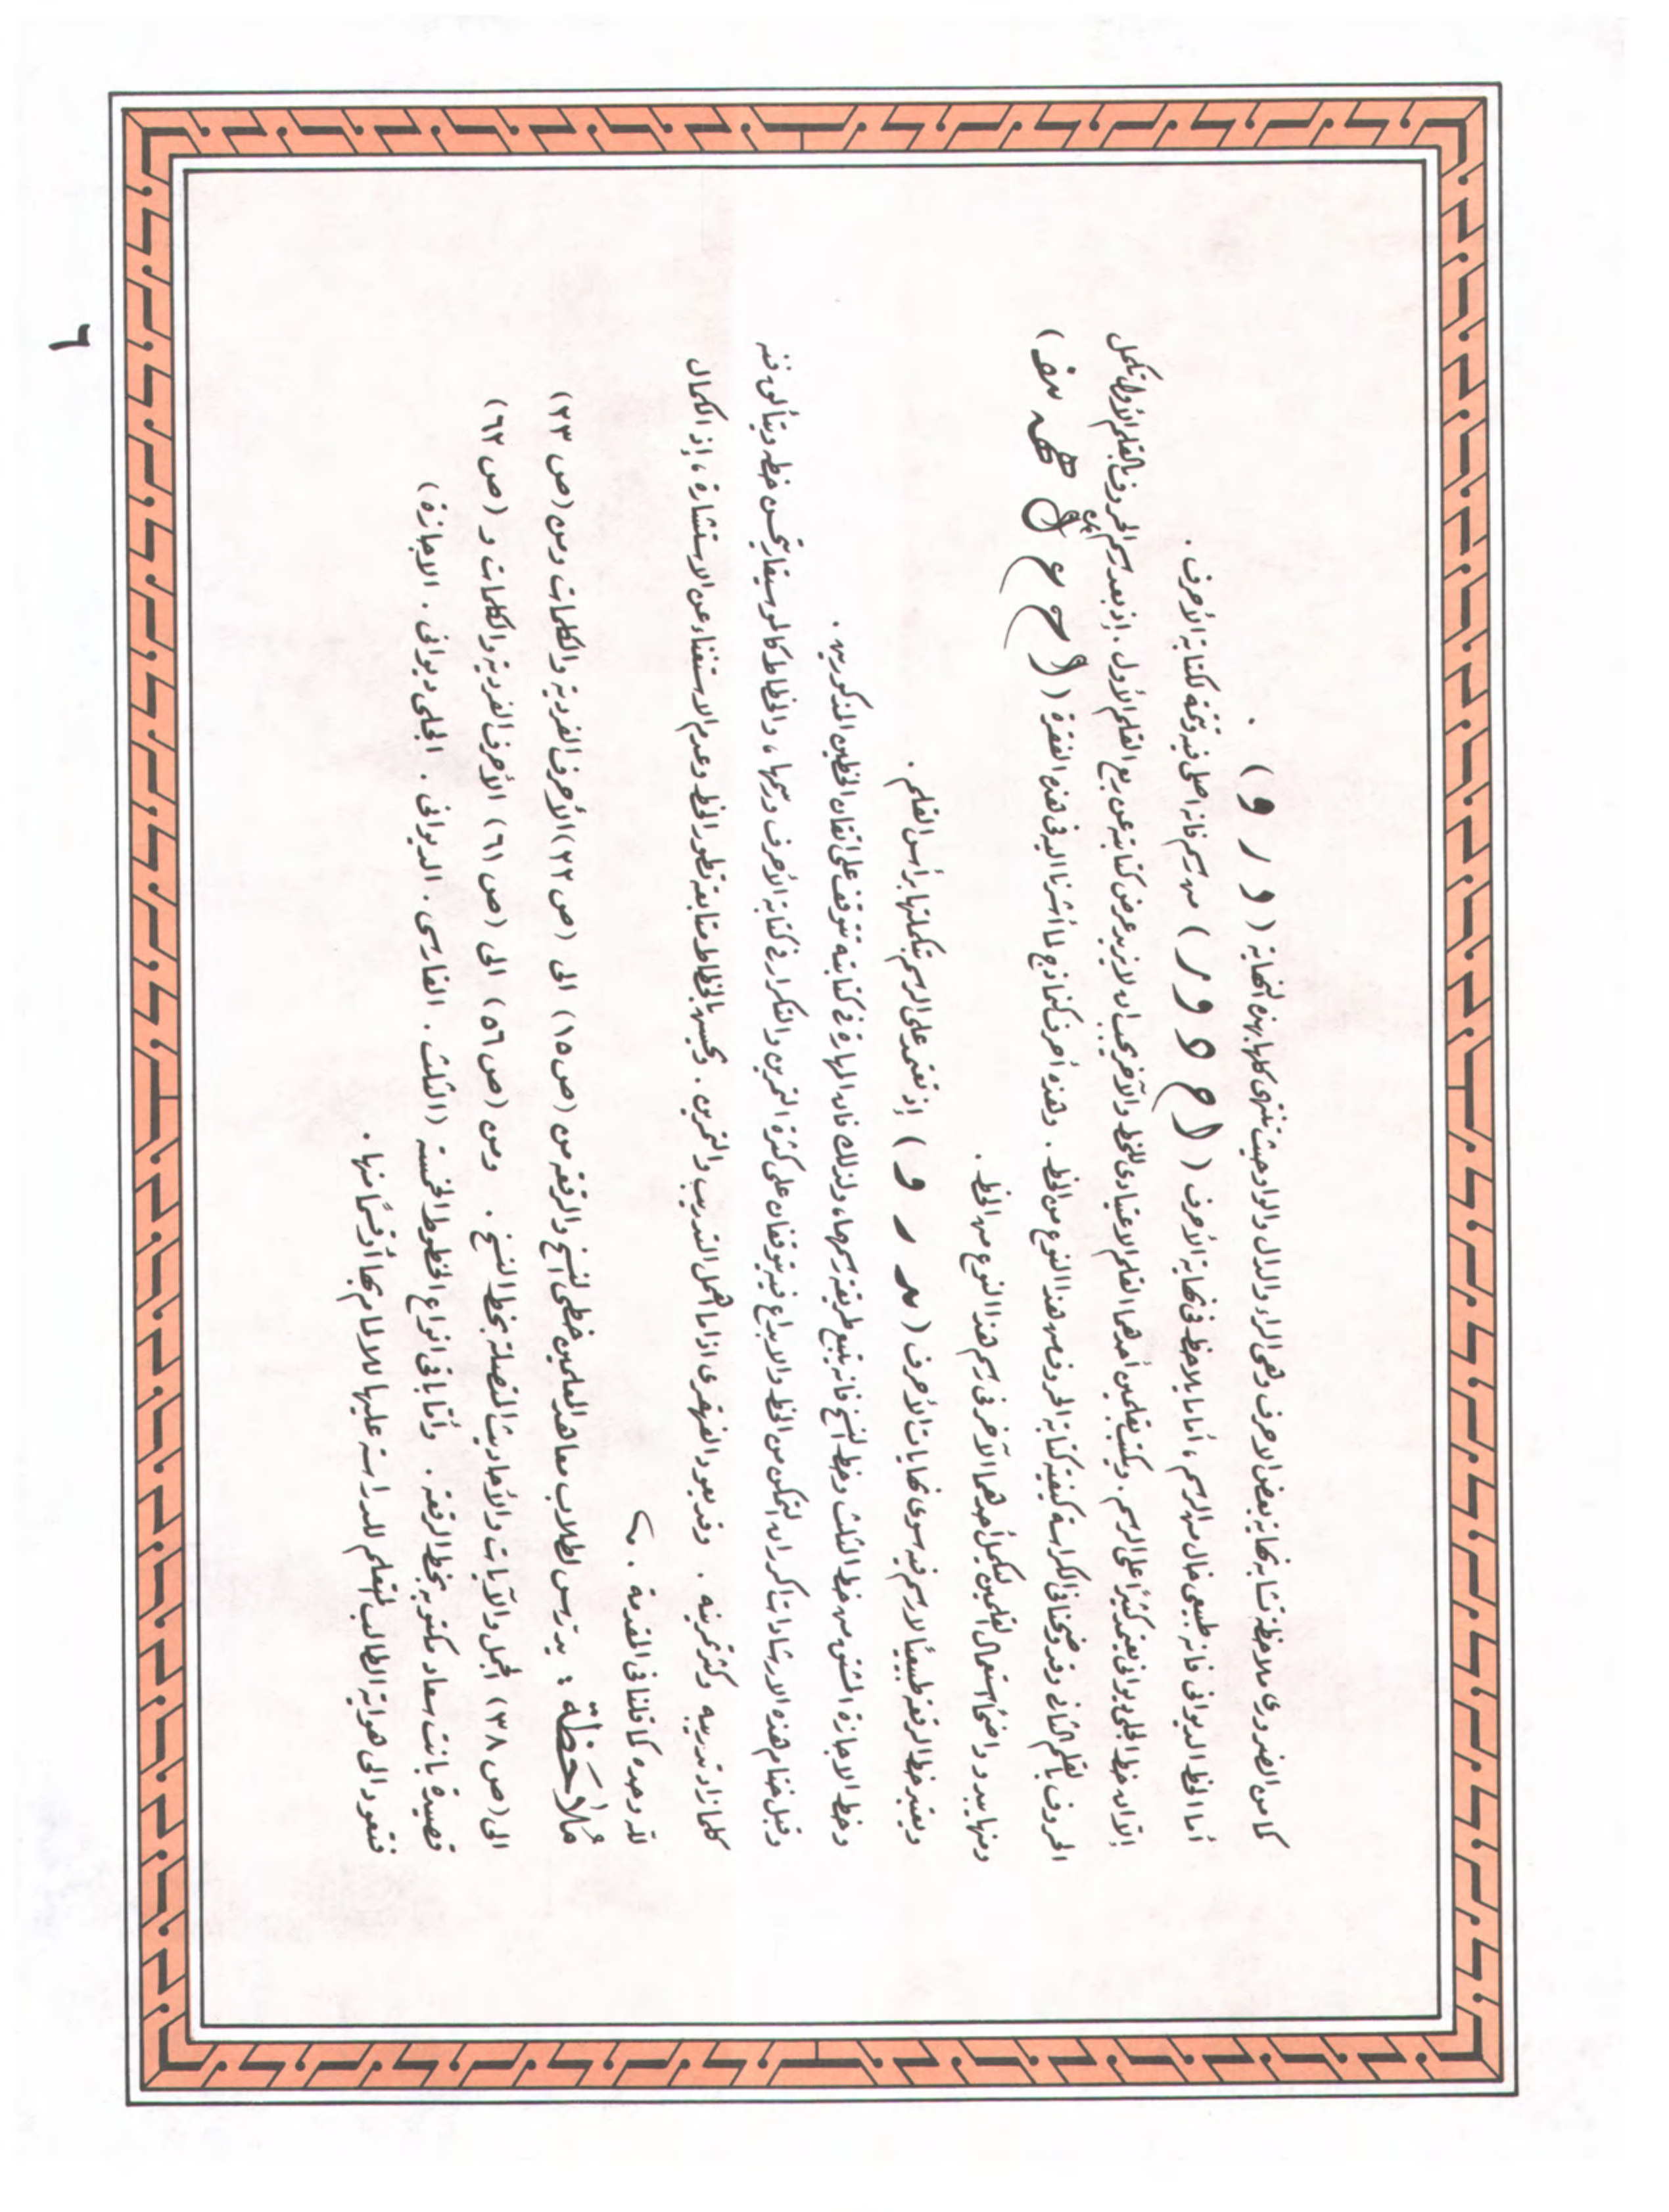 كما من الضروري ملاحظة تشابه نهاية بعض الاحرف وهى الراء والدال والواو حيث تنتهى كلها بهذه النهاية ( د ر و ) .
أما الخط الديوانى فانه طبيعى خال من الرسم ، أما ما يلاحظ فى نهاية الأحرف ( ا ح و و ر ) من رسم فانه اصلى فيه وتتمة لكتابة الأحرف .
إلا ان خط الجلى ديوانى يعتمد كثيراً على الرسم . ويكتب بقلمين أحدهما القلم الاعتيادى للخط والآخر يجب ان لا يزيد عرض كتابته عن ربع القلم الأول . إذ بعد رسم الحروف بالقلم الأول تكمل
الحروف بالقلم الثانى وقد وضحنا فى الكراسة كيفية كتابة الحروف من هذا النوع من الخط . وهذه أحرف كنماذج لما أشرنا اليه فى هذه الفقرة ( ا ح ع
ومنها يبدو واضحاً استعمال القلمين ليكمل أحدهما الآخر فى رسم هذا النوع من الخط .
ويعتبر خط الرقعه طبيعياً لا رسم فيه سوى نهايات الأحرف ( د ر و ) إذ تعتمد على الرسم تكملتها برأس القلم .
وخط الاجازة المشتق من خط الثلث وخط النسخ فانه يتبع طريقة رسمها ، ولذلك فان المهارة فى كتابته تتوقف على اتقان الخطين المذكورين .
وقبل ختام هذه الارشادات اكرر ان التمكن من الخط والابداع فيه يتوقفان على كثرة التمرين والتكرار فى كتابة الأحرف ورسمها ، والخطاط كالموسيقار يتحسن خطه ويتألق فنه
كلما زاد تدريبه وكثر تمرينه . وقد يعود القهقرى اذا ما اهمل التدريب والتمرين . ويحسن بالخطاط متابعة تطور الخط وعدم الاستغناء عن الاستشارة ، إذ الكمال
لله وحده كما قلنا فى المقدمة .
مُلاحَظة : يدرّس لطلاب معاهد المعلمين خطى النسخ والرقعه من (ص ١٥) الى (ص ٢٢) الأحرف الفردية والكلمات ومن (ص ٢٣)
الى (ص ٣٨) الجمل والآيات والأحاديث المتصلة بخط النسخ . ومن (ص ٥٦) الى (ص ٦١) الأحرف الفردية والكلمات و (ص ٦٢)
قصيدة بانت سعاد مكتوبة بخط الرقعة . وأمّا باقى انواع الخطوط الخمسة (الثلث . الفارسى . الديوانى . الجلى ديوانى . الاجازة)
فتعود الى هواية الطالب المتعلم للدراسة عليها للالمام بها أو قسمًا منها .
٦